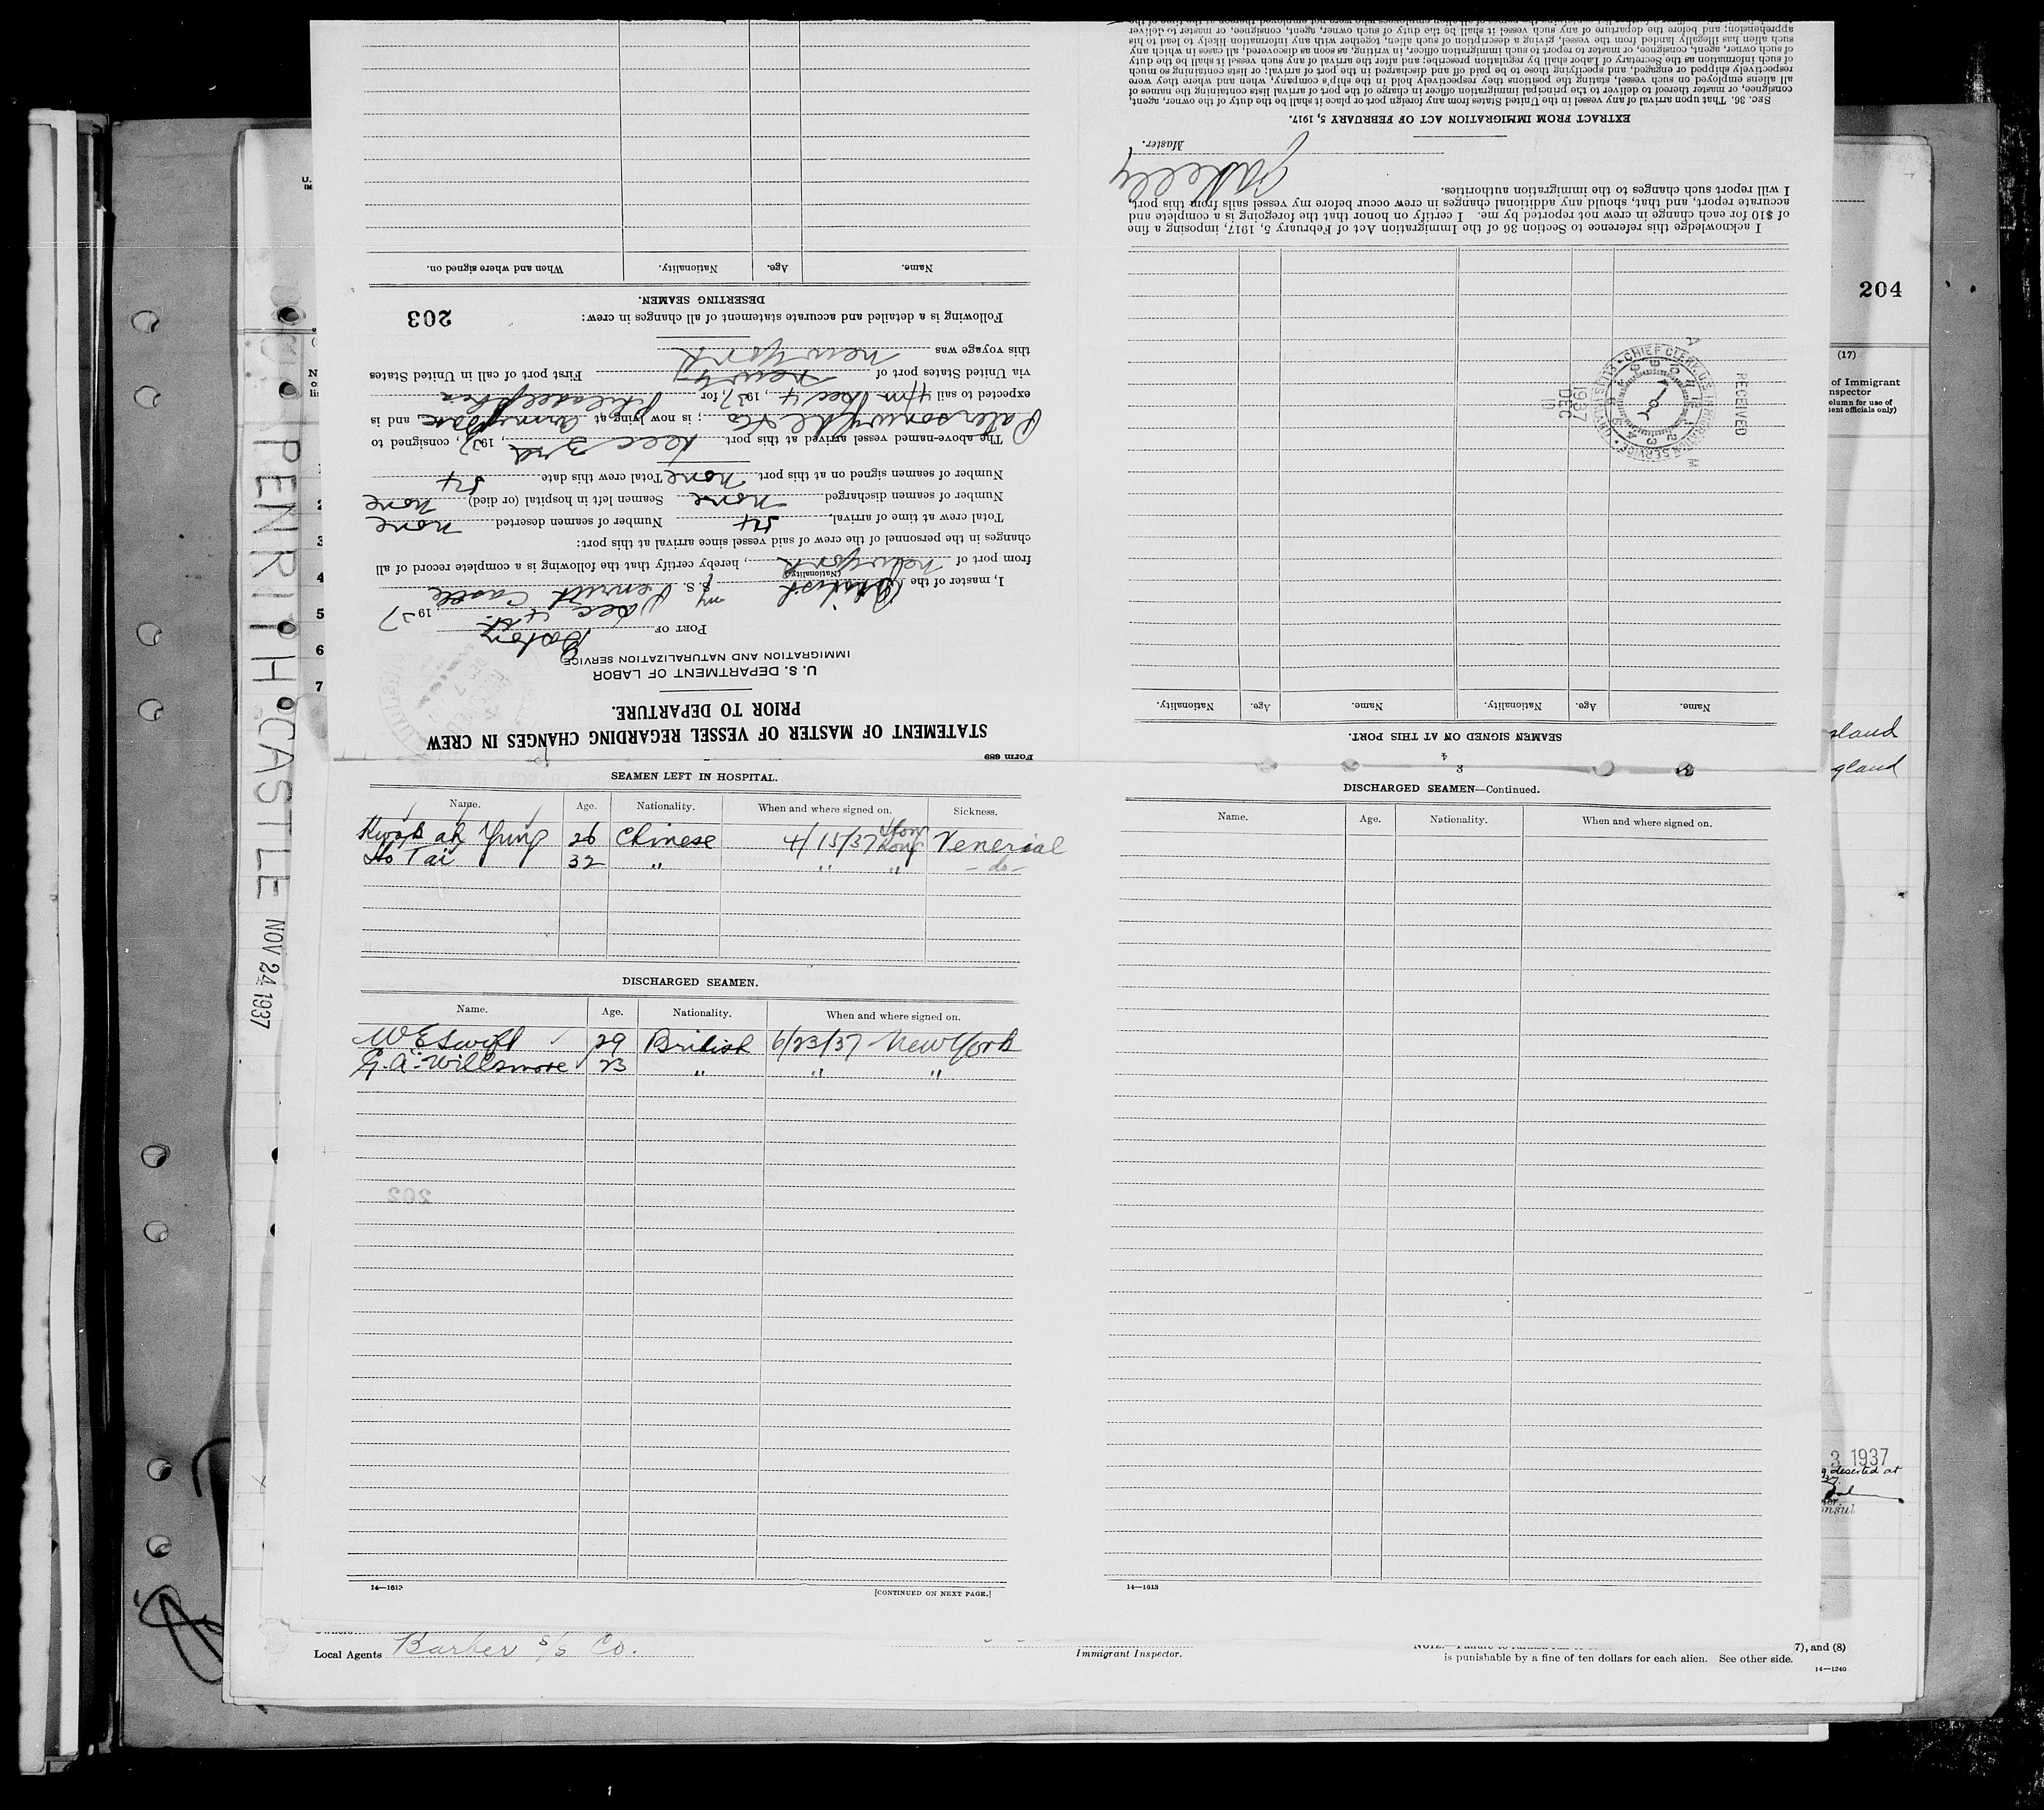 PENRITH CASTLE NOV 24 1937
STATEMENT OF MASTER OF VESSEL REGARDING CHANGES IN CREW
PRIOR TO DEPARTURE.
U. S. DEPARTMENT OF LABOR
IMMIGRATION AND NATURALIZATION SERVICE
PORT OF Boston
Dec 4th 1937
I, master of the British S. S. Penrith Castle
(Nationality)
from port of New York, hereby certify that the following is a complete record of all
changes in the personnel of the crew of said vessel since arrival at this port:
Total crew at time of arrival, 54 Number of seamen deserted none
Number of seamen discharged none Seamen left in hospital (or died) none
Number of seamen signed on at this port none Total crew this date 54
The above-named vessel arrived at this port Dec 3rd, 1937, consigned to
Paterson Wylde & Co; is now lying at Army Base, and is
expected to sail 4 pm Dec 4, 1937, for Philadelphia
via United States port of New Y First port of call in United States
this voyage was New York
Following is a detailed and accurate statement of all changes in crew:
203
DESERTING SEAMEN.
Name. Age. Nationality. When and where signed on.
Form 689
SEAMEN SIGNED ON AT THIS PORT.
Name. Age. Nationality. Name. Age. Nationality.
RECEIVED
CHIEF CLERK, U.S. IMMIGRATION SERVICE
DEC
1937
I acknowledge this reference to Section 36 of the Immigration Act of February 5, 1917, imposing a fine
of $10 for each change in crew not reported by me. I certify on honor that the foregoing is a complete and
accurate report, and that, should any additional changes in crew occur before my vessel sails from this port,
I will report such changes to the immigration authorities.
Master.
EXTRACT FROM IMMIGRATION ACT OF FEBRUARY 5, 1917.
SEC. 36. That upon arrival of any vessel in the United States from any foreign port or place it shall be the duty of the owner, agent,
consignee, or master thereof to deliver to the principal immigration officer in charge of the port of arrival lists containing the names of
all aliens employed on such vessel, stating the positions they respectively hold in the ship's company, when and where they were
respectively shipped or engaged, and specifying those to be paid off and discharged in the port of arrival; or lists containing so much
of such information as the Secretary of Labor shall by regulation prescribe; and after the arrival of any such vessel it shall be the duty
of such owner, agent, consignee, or master to report to such immigration officer, in writing, as soon as discovered, all cases in which any
such alien has illegally landed from the vessel, giving a description of such alien, together with any information likely to lead to his
apprehension; and before the departure of any such vessel it shall be the duty of such owner, agent, consignee, or master to deliver
SEAMEN LEFT IN HOSPITAL.
Name. Age. Nationality. When and where signed on. Sickness.
Kwok ah Yung 26 Chinese 4/15/37 Hong Kong Venerial
Ho Tai 32 " " " - do -
DISCHARGED SEAMEN.
Name. Age. Nationality. When and where signed on.
W E Swift 29 British 6/23/37 New York
G. A. Willsmore 23 " " "
202
14—1613
[CONTINUED ON NEXT PAGE.]
DISCHARGED SEAMEN—Continued.
Name. Age. Nationality. When and where signed on.
14—1613
204
(17)
of Immigrant
nspector
olumn for use of
ent officials only)
sland
gland
3 1937
deserted at
nsul
1
2
3
4
5
6
7
Local Agents Barber S/S Co.
Immigrant Inspector.
7), and (8)
is punishable by a fine of ten dollars for each alien. See other side.
14—1240